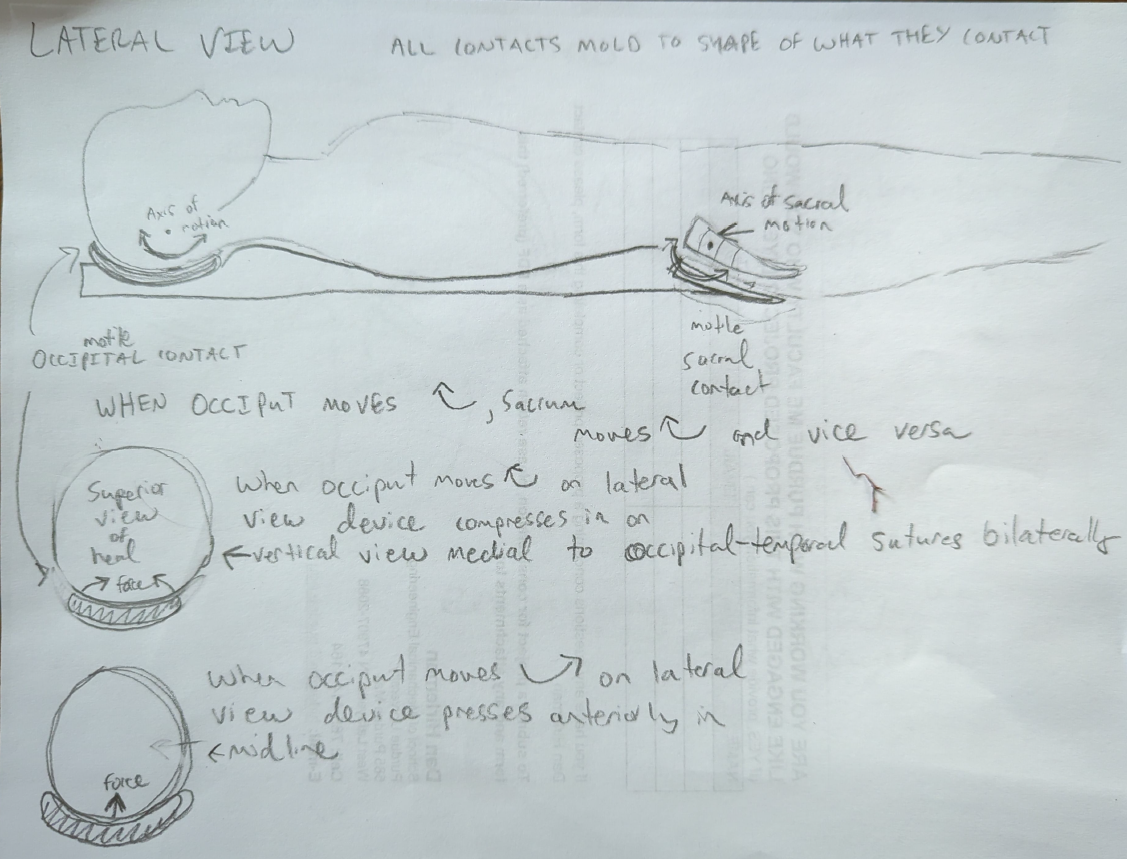 LATERAL VIEW
ALL CONTACTS MOLD TO SHAPE OF WHAT THEY CONTACT
Axis of
motion
Axis of sacral
motion
motile
OCCIPITAL CONTACT
motile
sacral
contact
WHEN OCCIPUT MOVES ↶, sacrum
moves ↶ and vice versa
Superior
view
of
head
force
When occiput moves ↶ on lateral
view device compresses in on
←vertical view medial to occipital-temporal sutures bilaterally
When occiput moves ⤻ on lateral
view device presses anteriorly in
←midline
force
ARE YOU WORKING WITH PURDUE ME FACULTY WHO WOULD
LIKE ENGAGED WITH THIS PROPOSED PROJECT